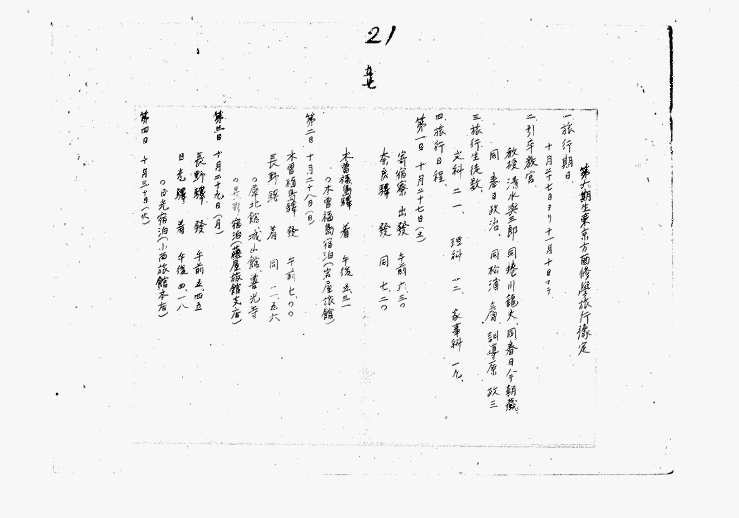 21
第六期生東京方面修學旅行豫定
一旅行期日
十月二十七日ヨリ十一月十日マデ
二引率教官
教授 清水與三郎 同 捲川龍夫、同 春日今朝藏
同 春日政治、同 松濤 訓導 原 政三
三旅行生徒数
文科 二一、 理科 一三 家事科 一九、
四旅行日程、
第一日 十月二十七日(土)
寄宿寮 出發 午前 六.三〇
奈良驛 發 同 七.二〇
木曽福島驛 着 午後 五.三一
〇木曽福島宿泊(岩屋旅館)
第二日 十月二十八日(日)
木曽福島驛 發 午前 七.〇〇
長野驛 着 同 一一.五六
〇犀北館 城山館、善光寺
宿泊(藤屋旅館支店)
第三日 十月二十九日(月)
長野驛 發 午前 五.四五
日光驛 着 午後 四.一八
〇日光宿泊(小西旅館本店)
第四日 十月三十日(火)